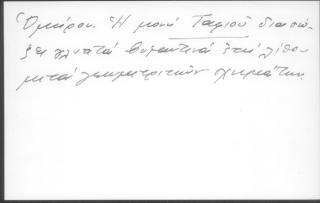 Ὁμήρου. Ἡ μονὴ Ταφιοῦ διασώ-
ζει γλυπτὰ βυζαντινὰ ἐπὶ λίθου
μετὰ γεωμετρικῶν σχημάτων.